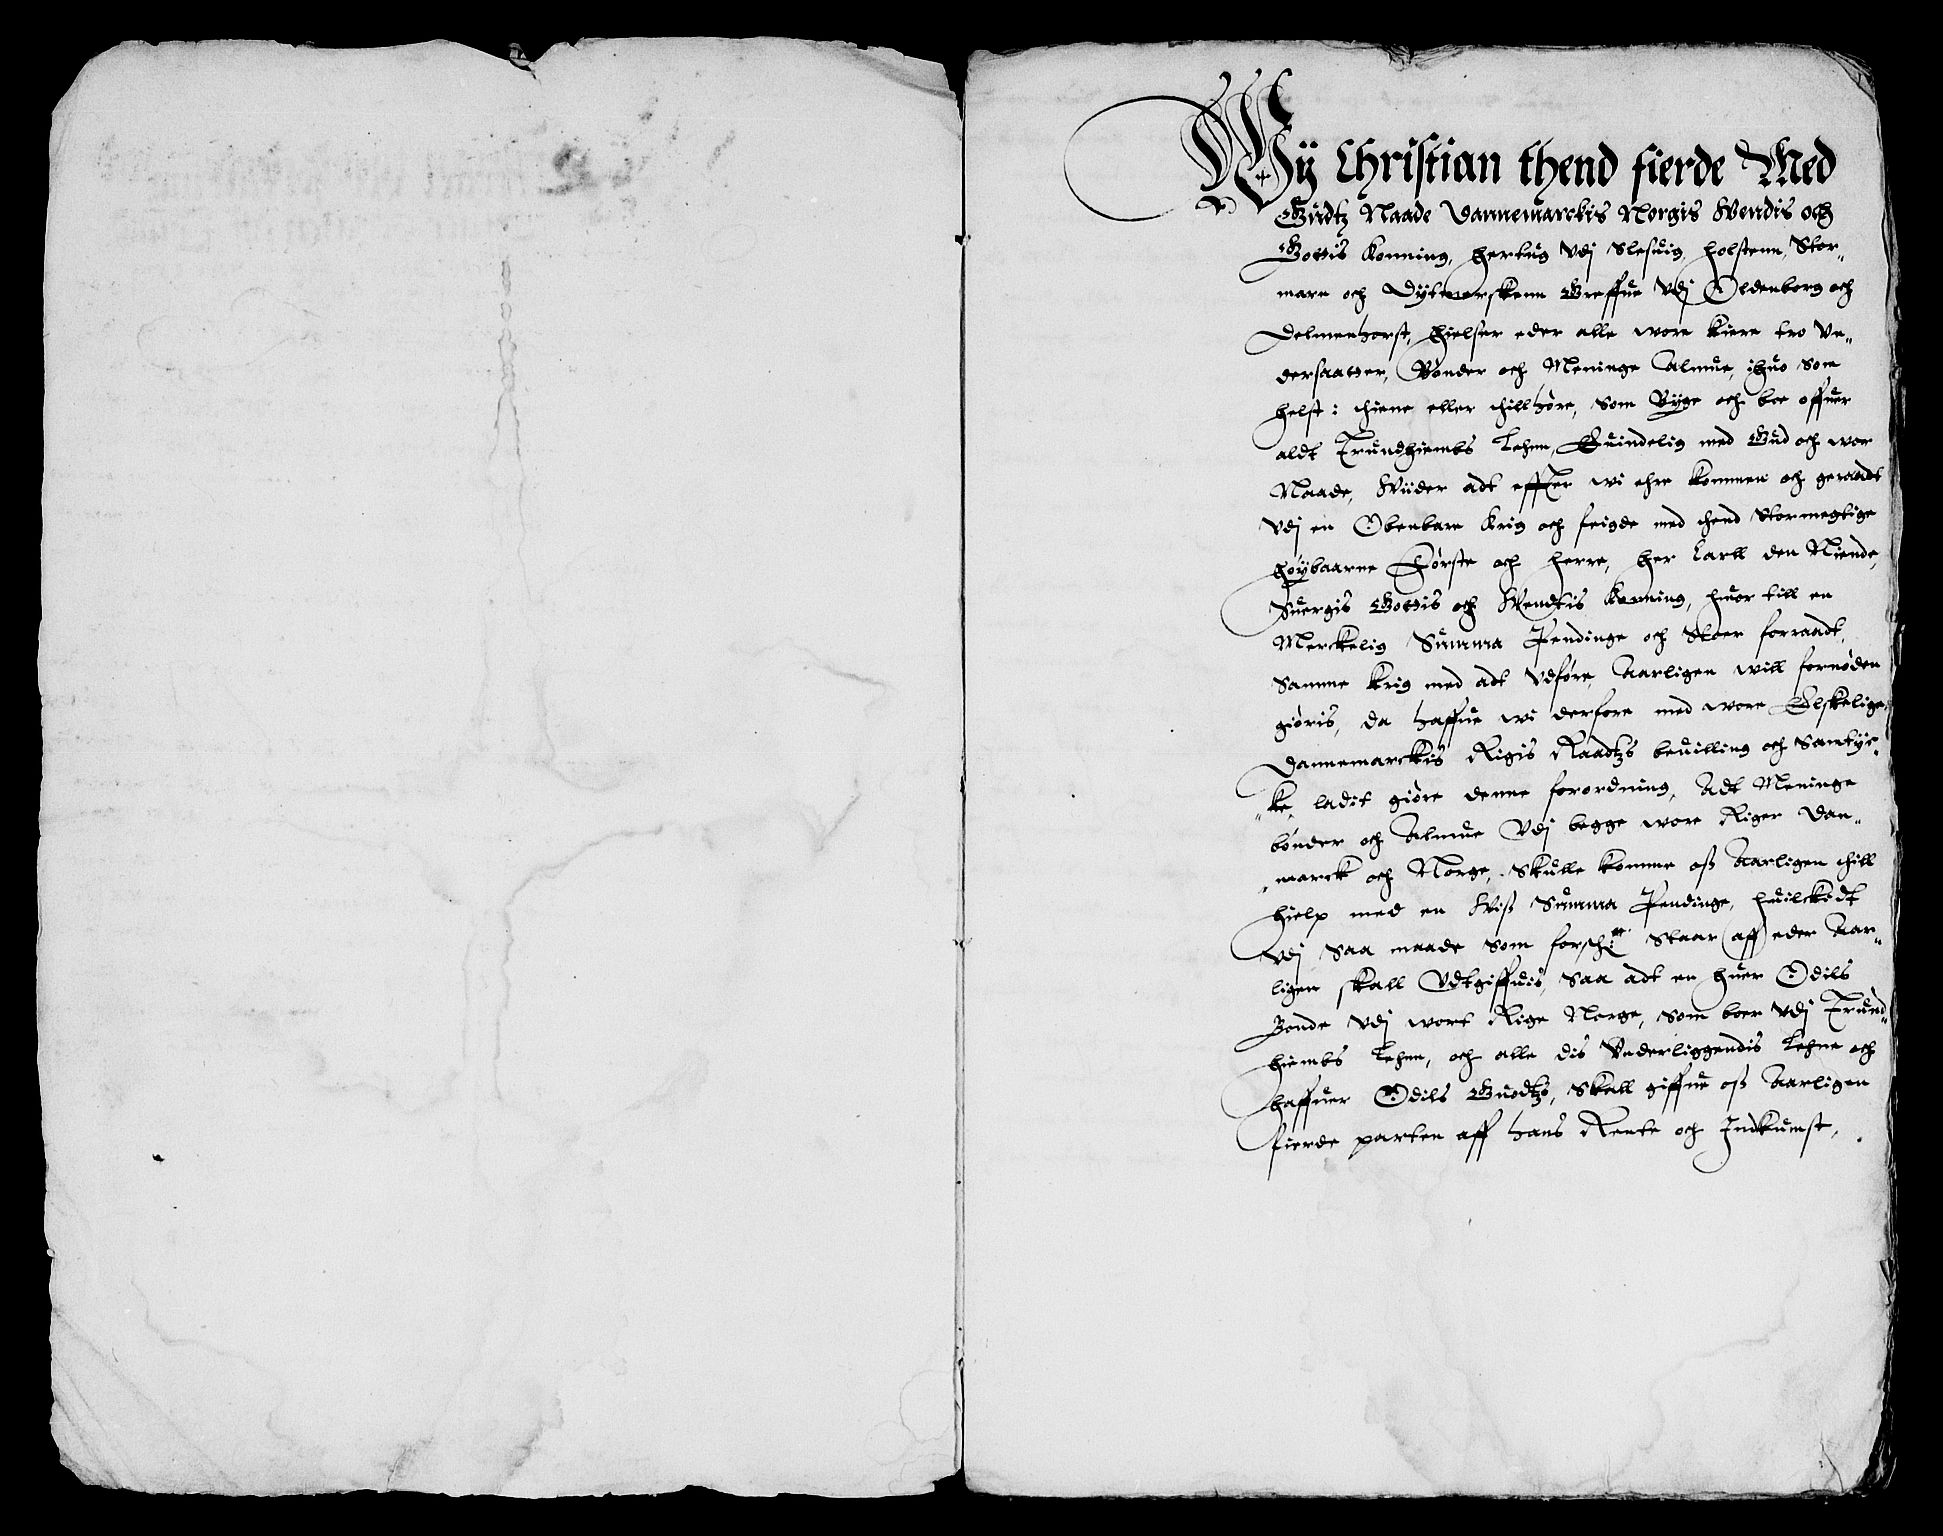 Wÿ Christian thend fierde Med
Gudtz Naade Dannemarckis Norgis Wendis och
Gottis Konning, Hertug vdj Slesuig, Holstenn, Stor-
marn och Dytmerskenn Greffue vdj Oldenborg och
Delmenhorst, Hielser eder alle wore kiere tro Vn-
dersaatter, Bønder och Meninge Almue, ihuo som
helst i thiene eller thillhøre, som Bÿge och boe offuer
aldt Trundhiembs Lehnn, Euindelig med Gud och wor
Naade, Wiider adt effter wi ehre kommen och geraadt
vdj en Obenbare Krig och feigde med thend Stormegtige
Høybaarne Første och Herre, Her Carll den Niende,
Suergis Gottis och Wendtis Konning, huor till en
Merckelig Summa Pendinge och stoer forraadt,
samme krig med adt vdføre, Aarligen will fornøden
giøris, da haffue wi derfore med wore Elskelige
Dannemarckis Rigis Raadtzs beuilling och samtyc-
ke, ladit giøre denne forordning, Adt Meninge
bønder och Almue vdj begge wore Riger Dan-
marck och Norge, skulle komme oß Aarligen thill
hielp med en Wiß Summa Pendinge, huilckedt
vdj saa maade som forschr: staar aff eder Aar-
ligen skall vdtgiffuis, saa adt en huer Odils
Bonde vdj wort Rige Norge, som boer vdj Trund-
hiembs Lehnn, och alle dis Vnderliggendis Lehne och
haffuer Odils Guodtzs, skall giffue oß Aarligen
fierde parten aff hans Rente och Indkumst,